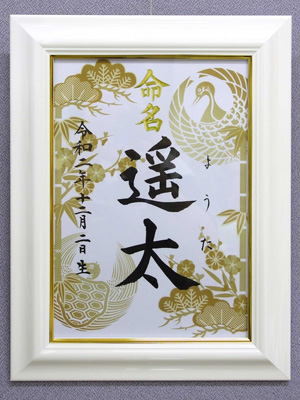 命名
遥太
ようた
令和二年十二月二日生